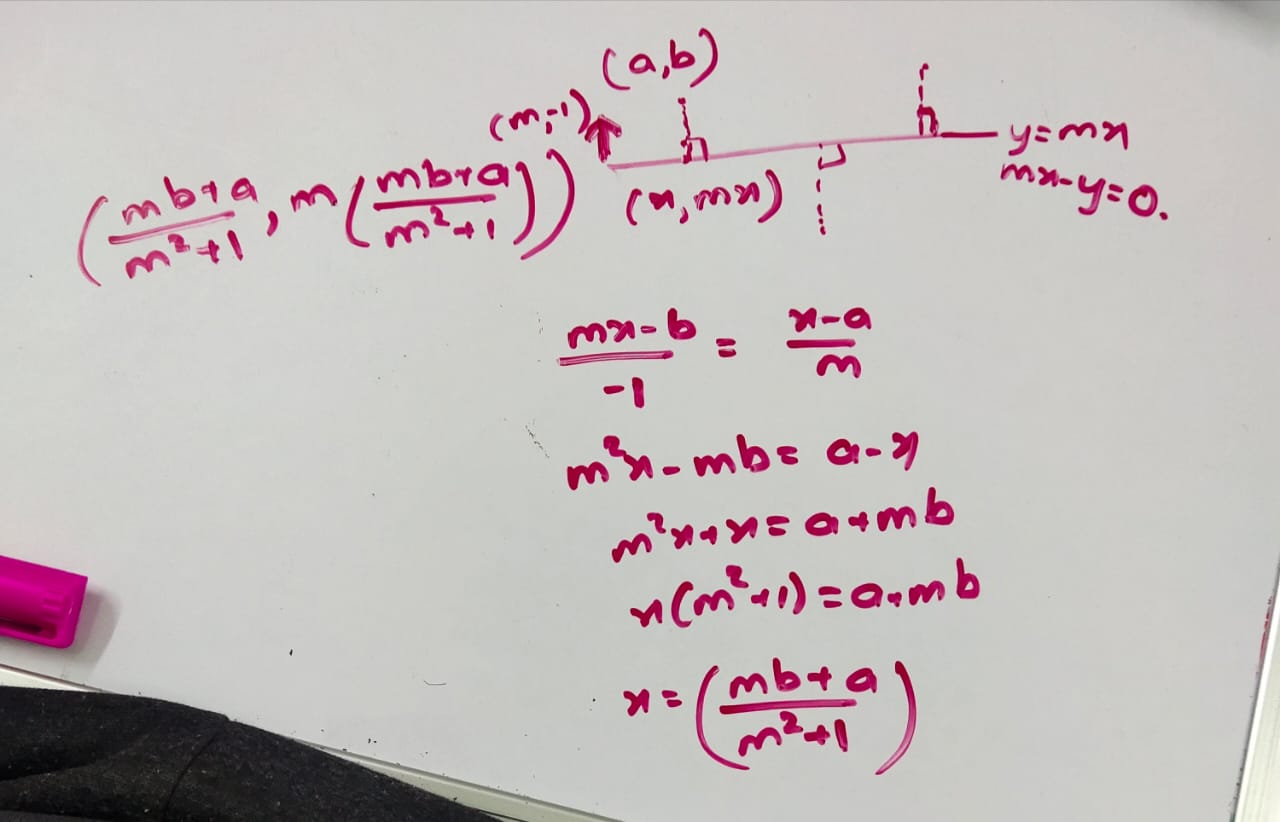 (a,b)
(m,-1)
y=mx
mx-y=0.
(x,mx)
(mb+a/m²+1, m(mb+a/m²+1))
mx-b/-1 = x-a/m
m²x-mb=a-x
m²x+x=a+mb
x(m²+1)=a+mb
x=(mb+a/m²+1)